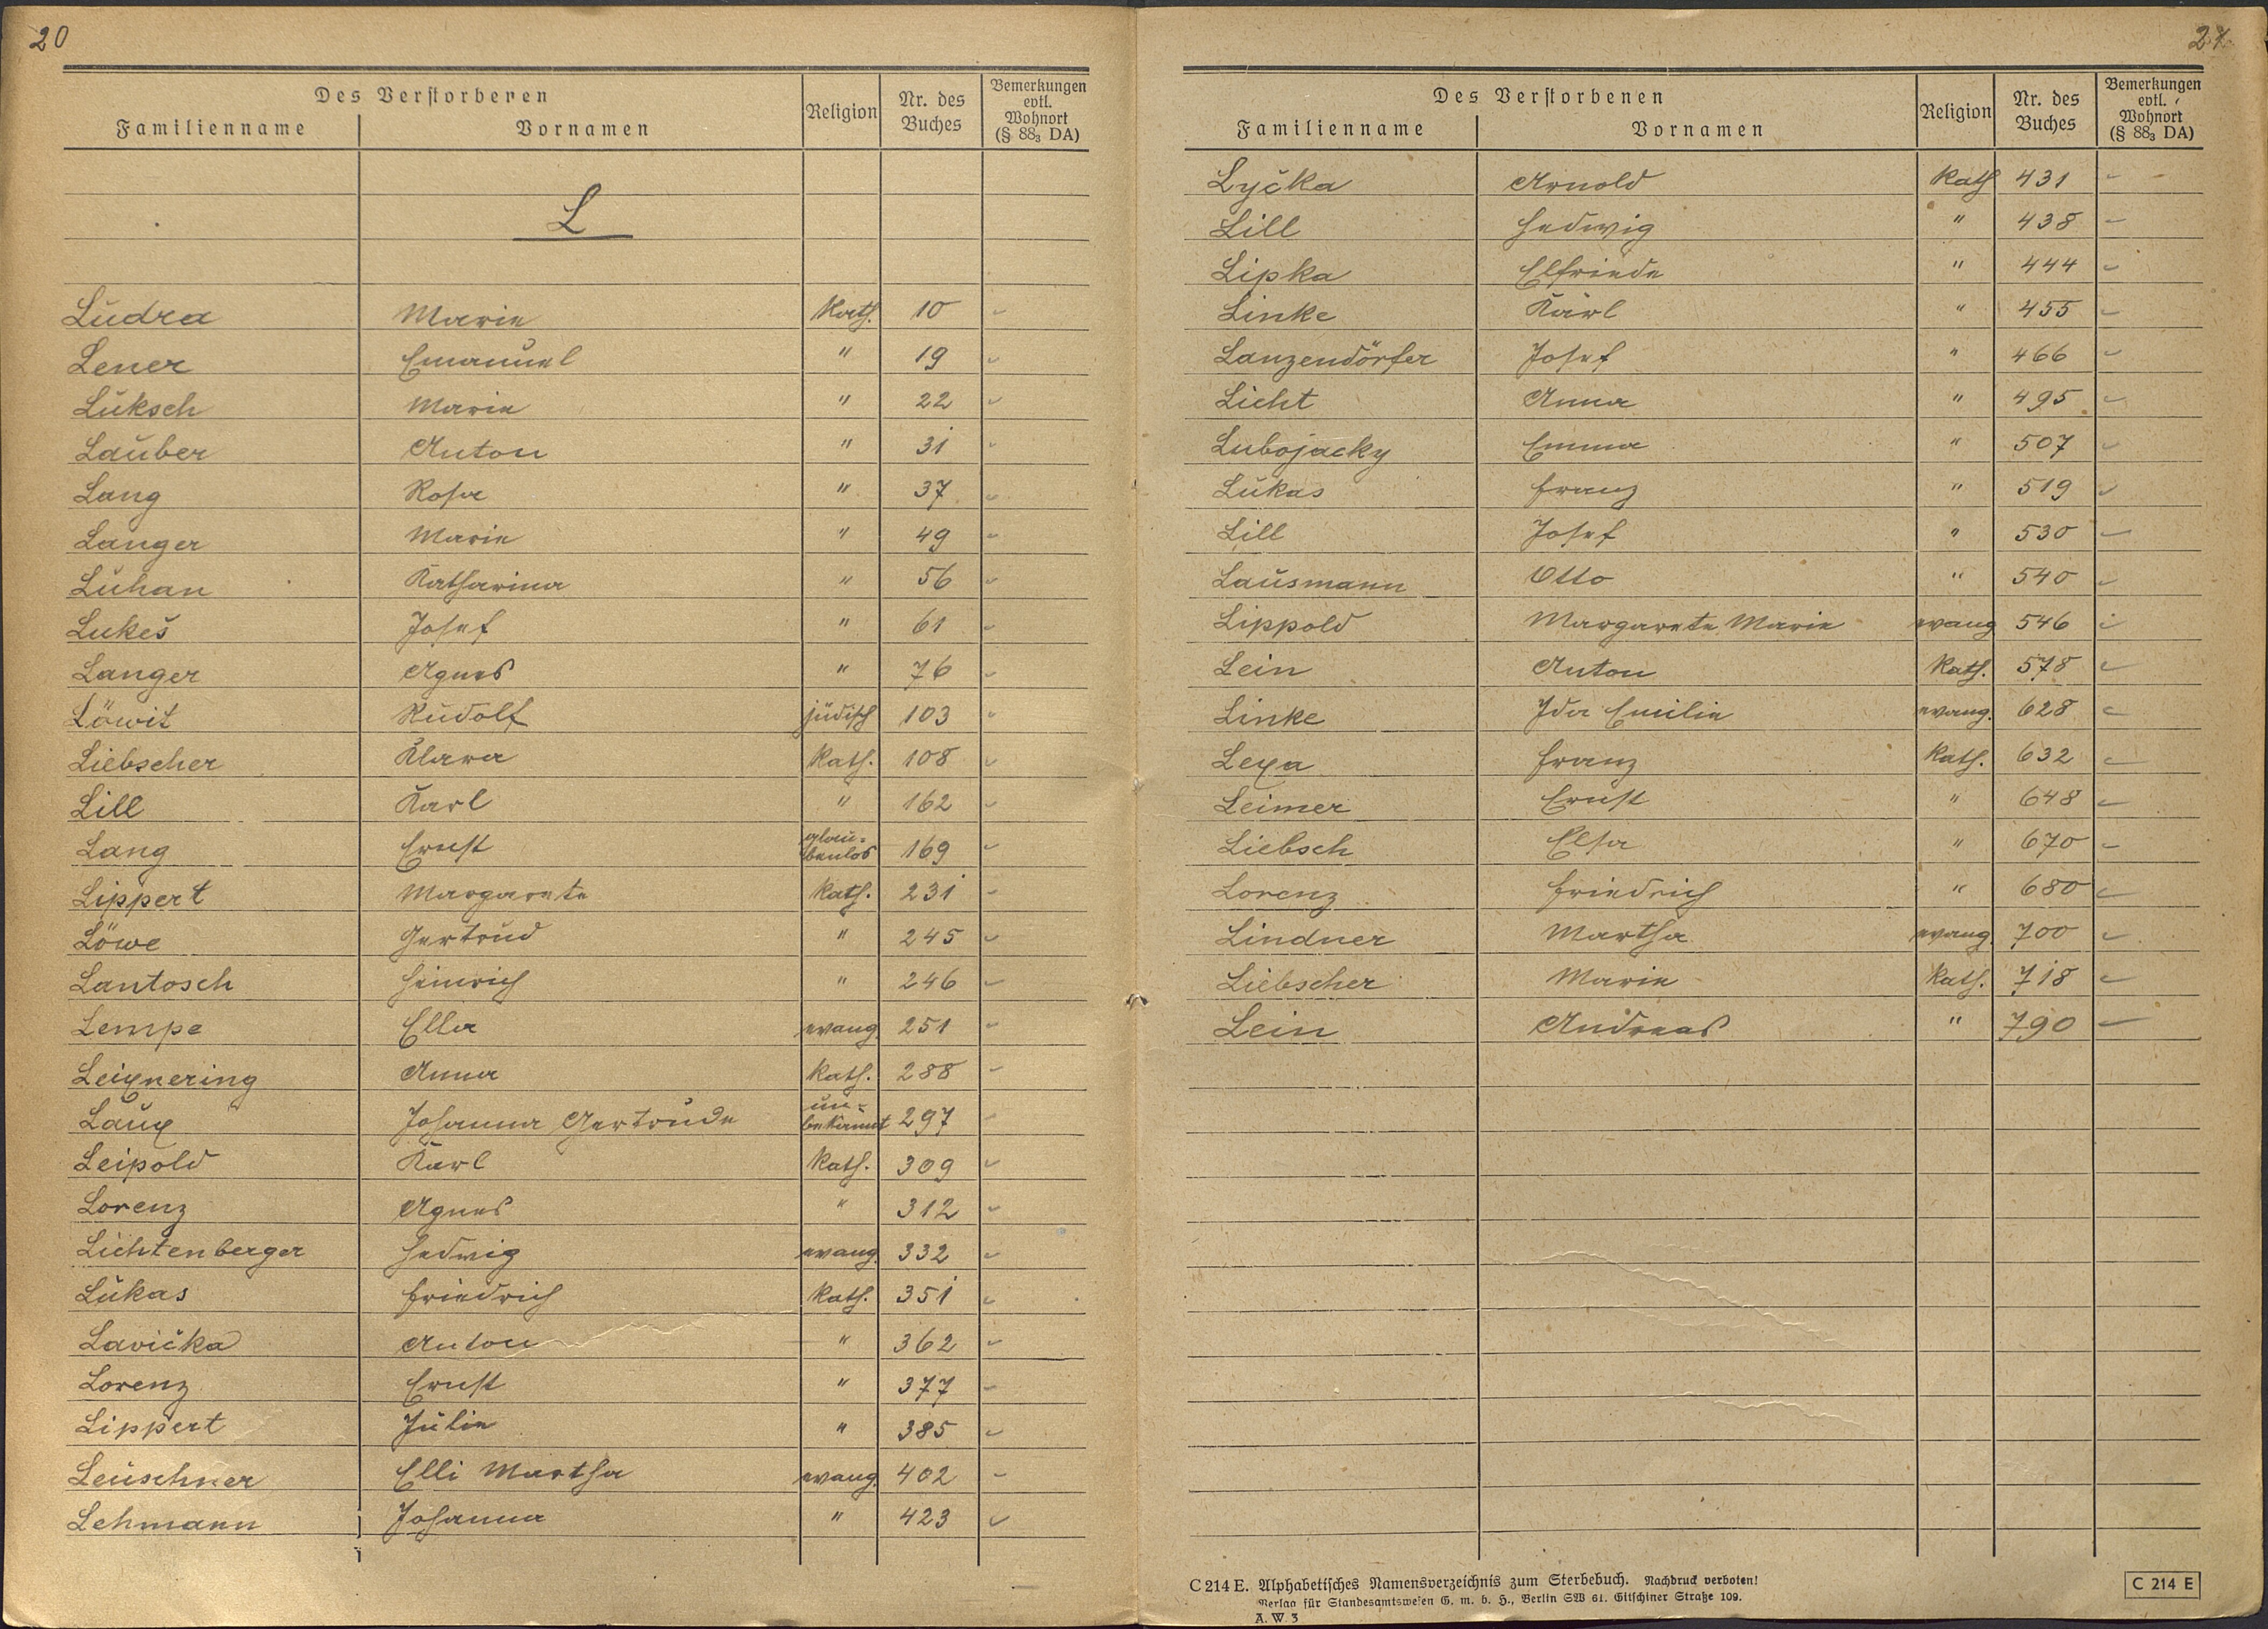 20
Des Verstorbenen
Familienname Vornamen Religion Nr. des Buches Bemerkungen evtl. Wohnort (§ 88₃ DA)
L
Ludra Marie Kath. 10
Lener Emanuel " 19
Luksch Marie " 22
Lauber Anton " 31
Lang Rosa " 37
Langer Marie " 49
Luhan Katharina " 56
Lukeš Josef " 61
Langer Agnes " 76
Löwit Rudolf jüdisch 103
Liebscher Klara Kath. 108
Lill Karl " 162
Lang Ernst glau=benlos 169
Lippert Margarete Kath. 231
Löwe Gertrud " 245
Lantosch Heinrich " 246
Lempe Ella evang. 251
Leixnering Anna Kath. 288
Laux Johanna Gertrude un=bekannt 297
Leipold Karl Kath. 309
Lorenz Agnes " 312
Lichtenberger Hedwig evang. 332
Lukas Friedrich Kath. 351
Lavička Anton " 362
Lorenz Ernst " 377
Lippert Julie " 385
Leuschner Elli Martha evang. 402
Lehmann Johanna " 423
21
Des Verstorbenen
Familienname Vornamen Religion Nr. des Buches Bemerkungen evtl. Wohnort (§ 88₃ DA)
Lyčka Arnold Kath 431
Lill Hedwig " 438
Lipka Elfriede " 444
Linke Karl " 455
Lanzendörfer Josef " 466
Licht Anna " 495
Lubojacky Emma " 507
Lukas Franz " 519
Lill Josef " 530
Lausmann Otto " 540
Lippold Margarete Marie evang 546
Lein Anton Kath. 578
Linke Ida Emilie evang. 628
Lexa Franz Kath. 632
Leimer Ernst " 648
Liebsch Elsa " 670
Lorenz Friedrich " 680
Lindner Martha evang. 700
Liebscher Marie Kath. 718
Lein Andreas " 790
C 214 E. Alphabetisches Namensverzeichnis zum Sterbebuch. Nachdruck verboten!
Verlag für Standesamtswesen G. m. b. H., Berlin SW 61. Gitschiner Straße 109.
A. W. 3
C 214 E